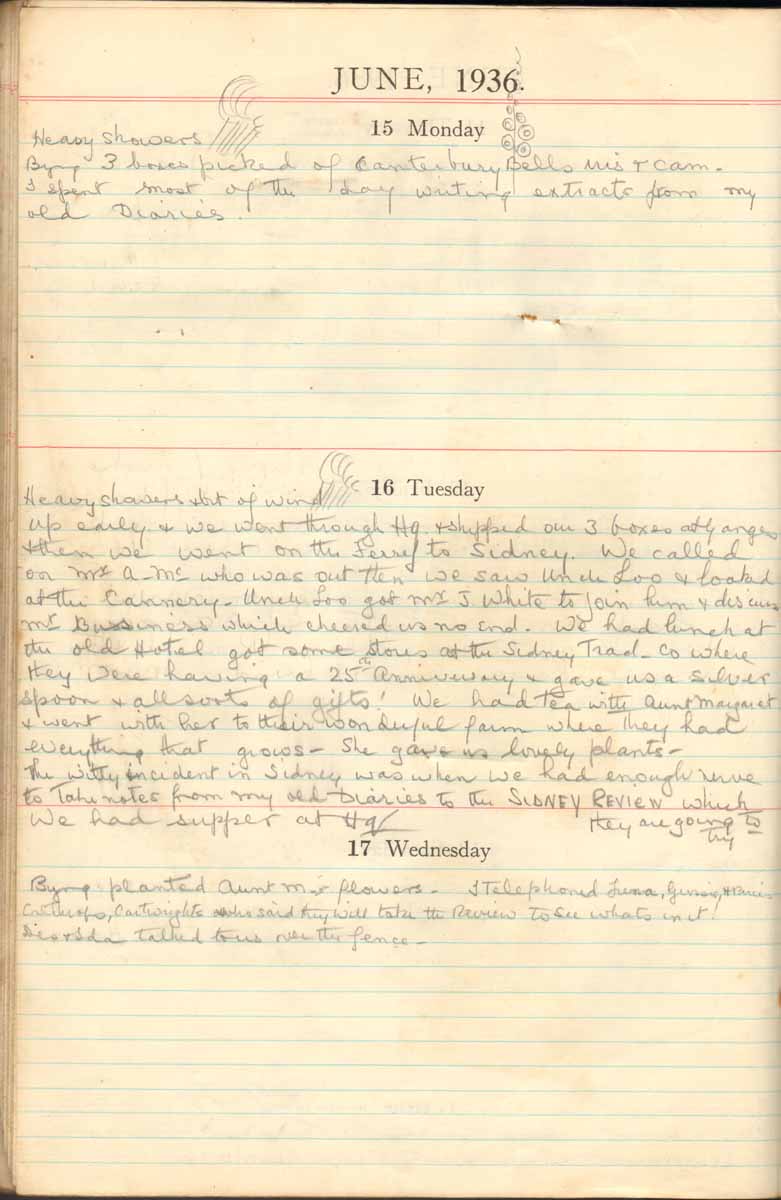 JUNE, 1936.
15 Monday
Heavy showers
Byng 3 boxes picked of Canterbury Bells mis & cam.
I spent most of the day writing extracts from my
old Diaries.
16 Tuesday
Heavy showers & bit of wind
Up early & we went through Hq. & shipped our 3 boxes at Ganges
& then we went on the Ferry to Sidney. We called
on Mrs A. Mc who was out then we saw Uncle Loo & looked
at the Cannery. Uncle Loo got Mr J White to join him & discuss
Mr Bussiness which cheered us no end. We had lunch at
the old Hotel got some stores at the Sidney Trad. Co where
they were having a 25th Anniversary & gave us a silver
spoon & all sorts of gifts! We had Tea with Aunt Margaret
& went with her to their wonderful farm where they had
everything that grows - She gave us lovely plants -
The witty incident in Sidney was when we had enough nerve
to Take notes from my old Diaries to the SIDNEY REVIEW which
We had supper at Hq
they are going to
try
17 Wednesday
Byng planted Aunt M's flowers - I Telephoned
Cartwrights who said they will take the Review To See whats in it!
talked to us over the fence -